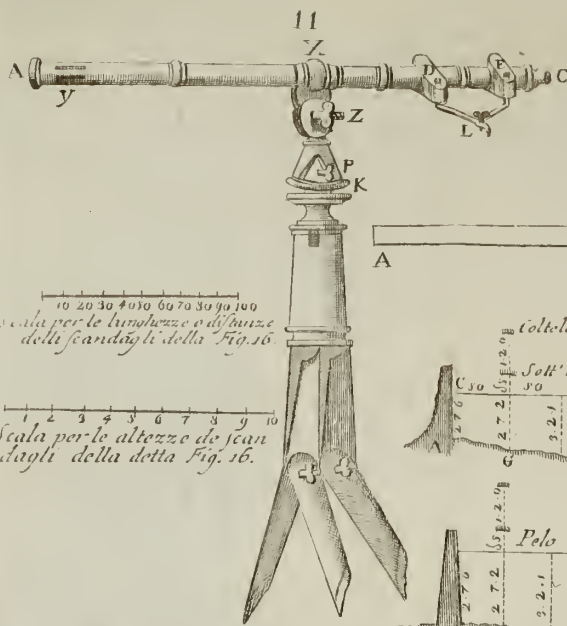 11
X
A
D
F
C
y
Z
L
P
K
A
10 20 30 40 50 60 70 80 90 100
Scala per le lunghezze o distanze
delli scandagli della Fig. 16.
1 2 3 4 5 6 7 8 9 10
Scala per le altezze de scan
dagli della detta Fig. 16.
Coltell
Sott'
C 50
50
2 7 6
2 7 2
3. 2. 1
A
G
Pelo
2. 7. 6
2 7 2
3. 2. 1